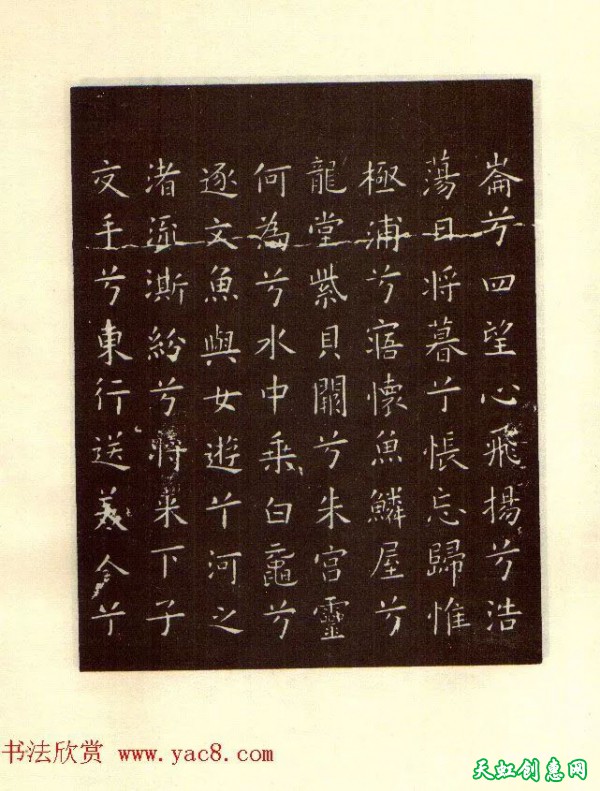 崙兮四望心飛揚兮浩
蕩日将暮兮悵忘歸惟
極浦兮寤懷魚鱗屋兮
龍堂紫貝闕兮朱宮靈
何為兮水中乘白黿兮
逐文魚與女遊兮河之
渚流澌紛兮将来下子
交手兮東行送美人兮
书法欣赏 www.yac8.com
天虹创意网